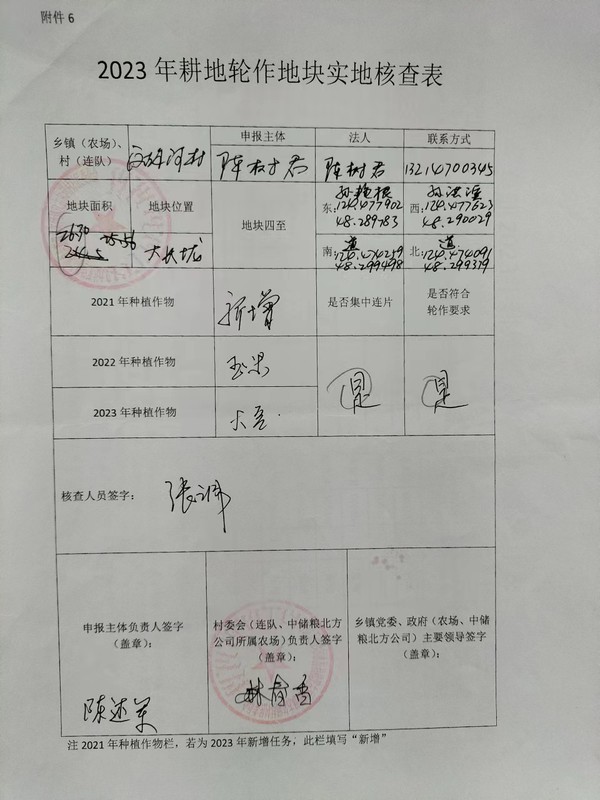 附件 6
2023 年耕地轮作地块实地核查表
乡镇（农场）、村（连队）
申报主体
法人
联系方式
陈树君
陈树君
13214700345
地块面积
地块位置
地块四至
东：124.477902
48.289783
西：124.477623
48.290029
2630
25.56
大长垅
南：道
124.474259
48.299498
北：道
124.474091
48.299379
2021 年种植作物
新增
是否集中连片
是否符合轮作要求
2022 年种植作物
玉米
2023 年种植作物
大豆
是
是
核查人员签字：
申报主体负责人签字
（盖章）：
村委会（连队、中储粮北方公司所属农场）负责人签字
（盖章）：
乡镇党委、政府（农场、中储粮北方公司）主要领导签字
（盖章）：
注 2021 年种植作物栏，若为 2023 年新增任务，此栏填写“新增”